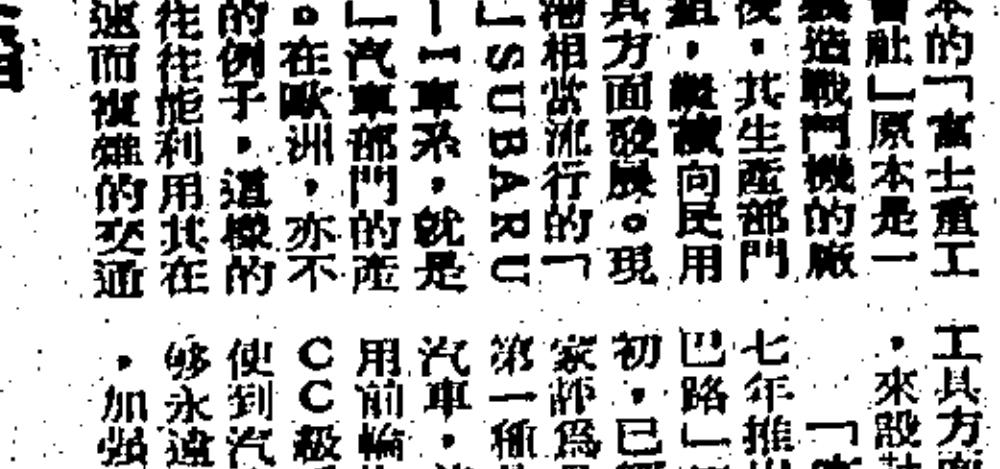 本的「富士重工
會社」原本是一
製造戰鬥機的廠
後，其生產部門
組，繼續向民用
其方面發展。現
港相當流行的「
」SUBARU
—I車系，就是
」汽車部門的產
。在歐洲，亦不
的例子，這樣的
往往能利用其在
速而複雜的交通
工具方面
，來設計
「
七年推出
巴路」
初，已經
家評爲
第一種
汽車，
用前輪
CC級
使到汽
够永遠
，加强